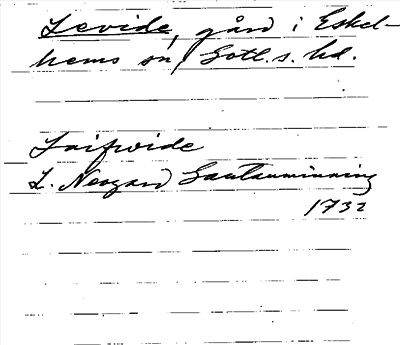 Levide, gård i Eskel-
hems sn, Gotl. s. hd.
Laifwide
L. Neogard Gautauminning
1732